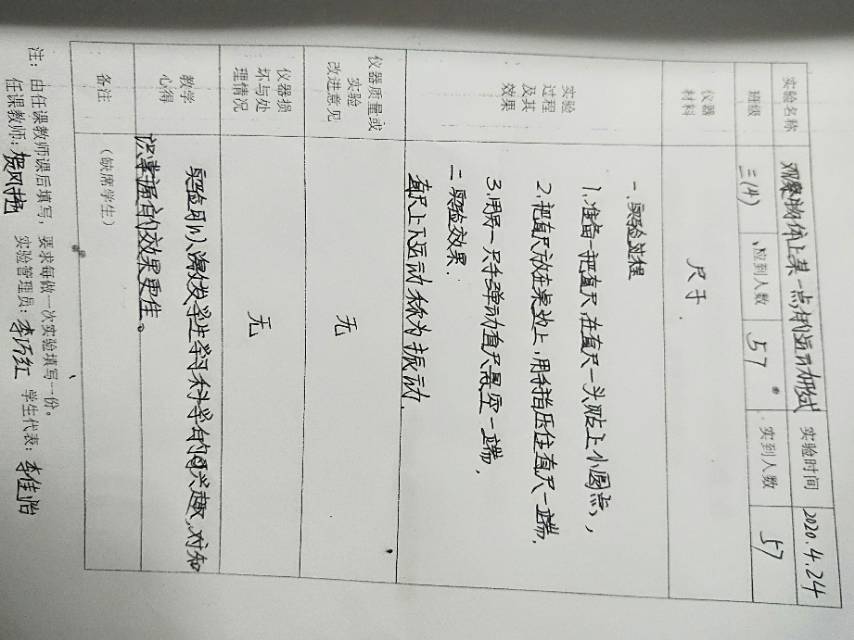 实验名称 观察物体上某一点的运动形式 实验时间 2020.4.24
班级 三(4) 应到人数 57 实到人数 57
仪器材料 尺子.
实验过程及其效果
一.实验过程
1.准备一把直尺,在直尺一头贴上小圆点,
2.把直尺放在桌边上,用手指压住直尺一端.
3.用另一只手弹动直尺悬空一端,
二.实验效果.
直尺上下运动称为振动.
仪器质量或实验改进意见 无
仪器损坏与处理情况 无
教学心得 实验可以激发学生学习科学的兴趣,对知
识掌握的效果更佳。
备注 (缺席学生)
注:由任课教师课后填写,要求每做一次实验填写一份。
任课教师: 实验管理员:李巧红 学生代表:李佳怡